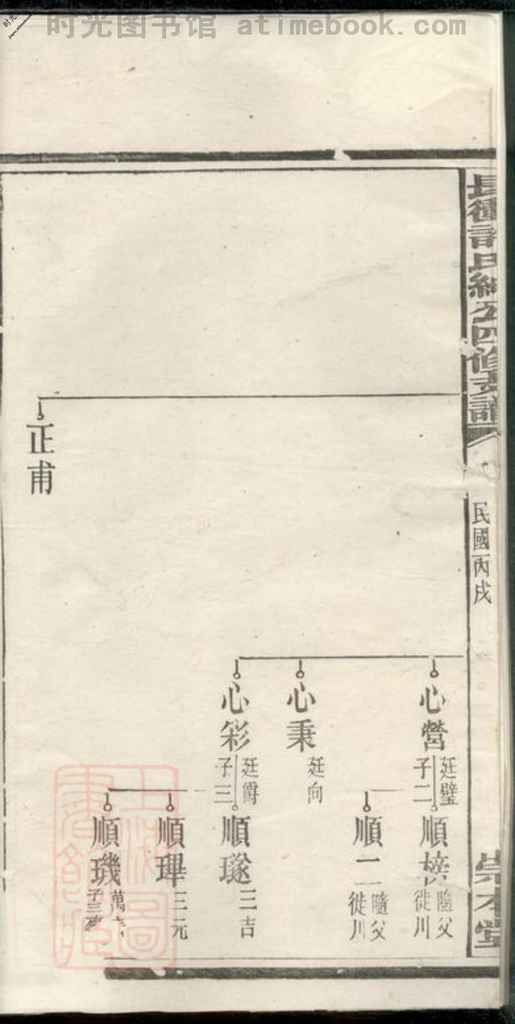 时光图书馆 atimebook.com
長衝許氏純公四修支譜
民國丙戌
崇本堂
心營
廷璧
子二
順榜
隨父
徙川
順二
隨父
徙川
心秉
廷向
心彩
廷爵
子三
順璲
三吉
順琿
三元
順璣
萬
正甫